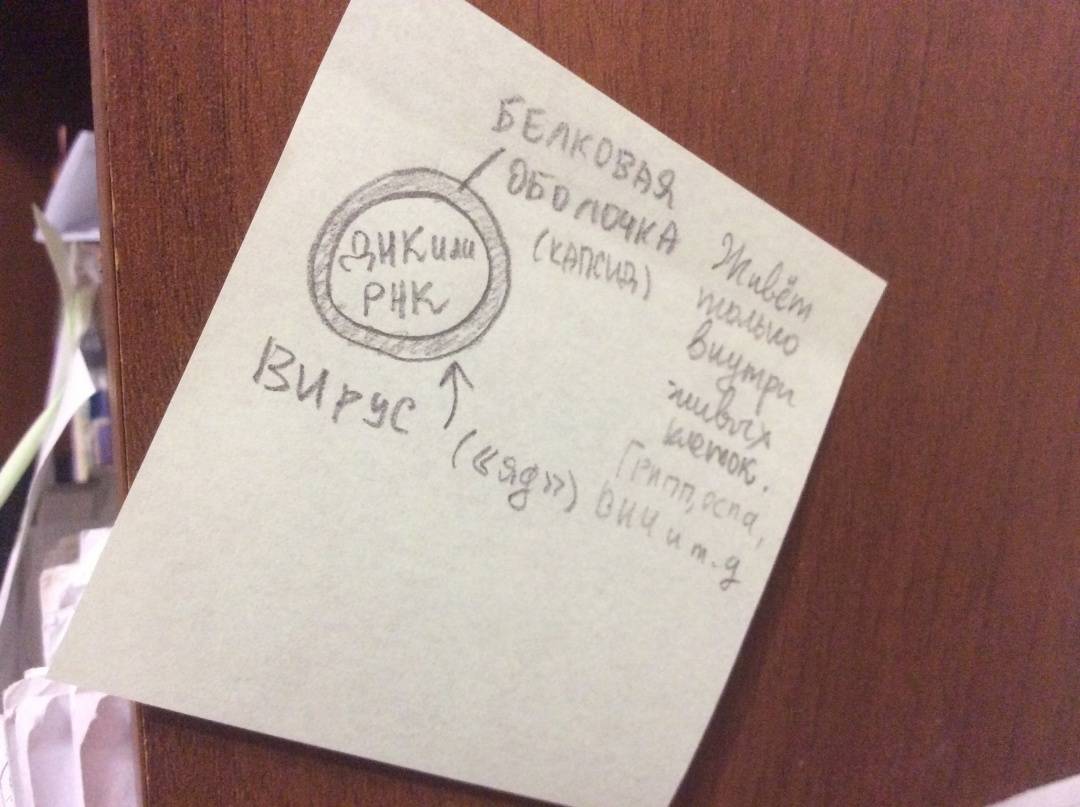 БЕЛКОВАЯ
ОБОЛОЧКА
(КАПСИД)
ДНК или
РНК
ВИРУС
(«яд»)
Живёт
только
внутри
живых
клеток.
Грипп, оспа,
ВИЧ и т.д